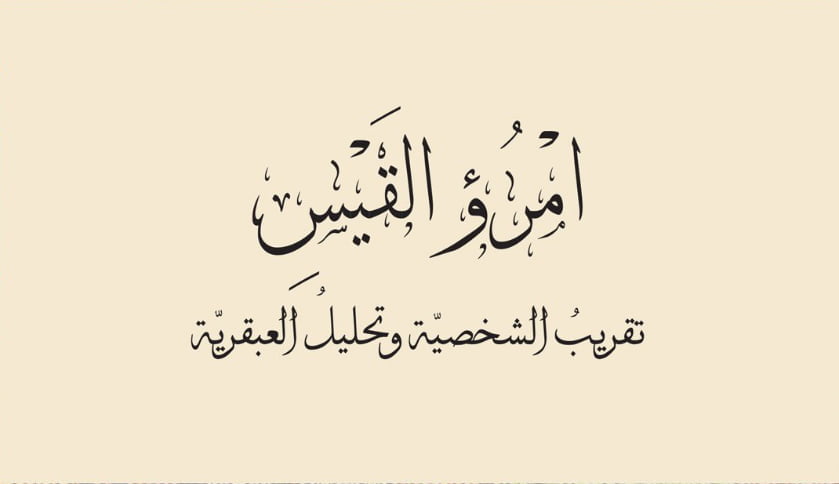 امْرُؤ القَيْسِ
تقريبُ الشخصيّة وتحليلُ العبقريّة